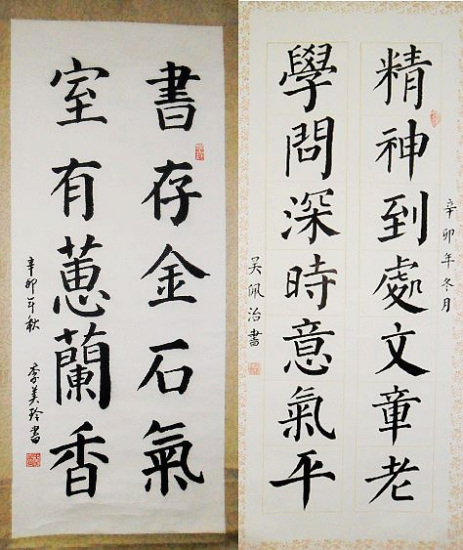 書存金石氣
室有蕙蘭香
辛卯年秋
李美玲書
辛卯年冬月
精神到處文章老
學問深時意氣平
吳佩治書